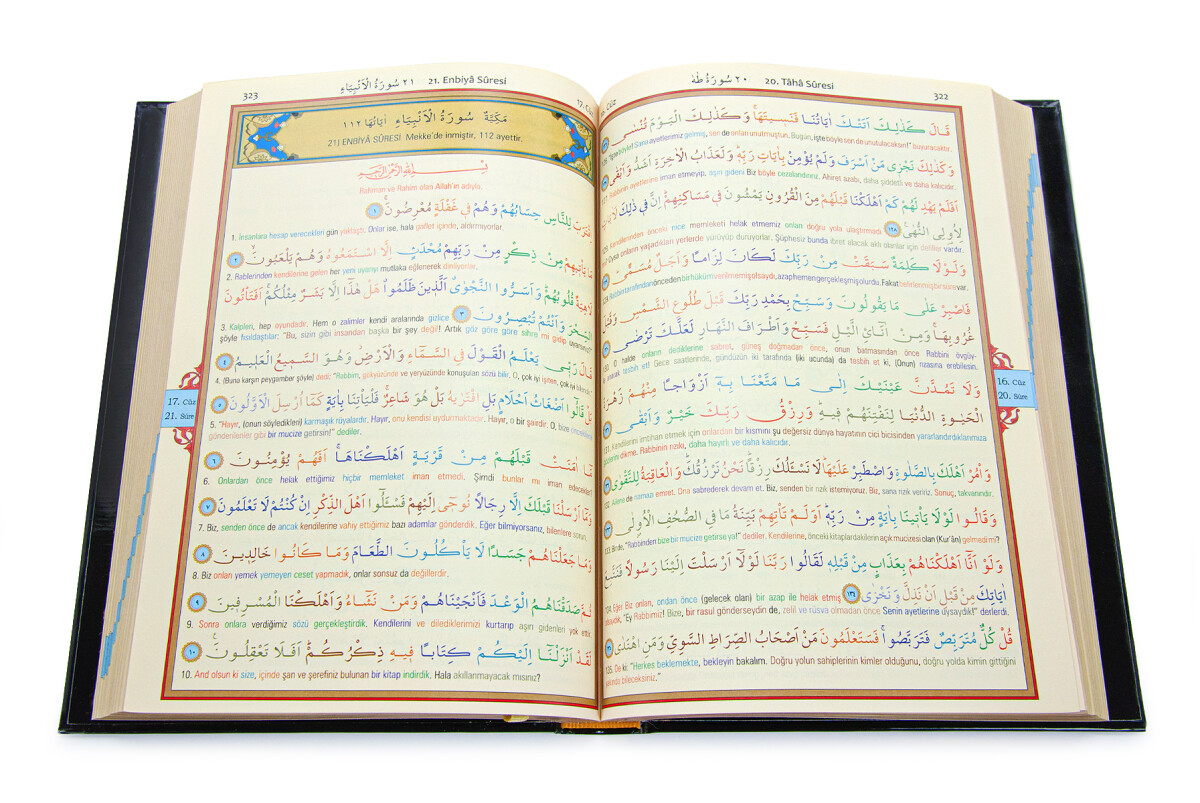 ٢٠ سُورَةُ طٰهٰ 20. Tâhâ Sûresi
322
قَالَ كَذٰلِكَ اَتَتْكَ اٰيَاتُنَا فَنَسِيتَهَاۚ وَكَذٰلِكَ الْيَوْمَ تُنْسٰى
ayetlerimiz gelmiş, sen de onları unutmuştun. Bugün, işte böyle sen de unutulacaksın!" buyuracaktır.
وَكَذٰلِكَ نَجْزٖى مَنْ اَسْرَفَ وَلَمْ يُؤْمِنْ بِاٰيَاتِ رَبِّهٖۜ وَلَعَذَابُ الْاٰخِرَةِ اَشَدُّ وَاَبْقٰى
Rabbinin ayetlerine iman etmeyip, aşırı gideni Biz böyle cezalandırırız. Ahiret azabı, daha şiddetli ve daha kalıcıdır.
اَفَلَمْ يَهْدِ لَهُمْ كَمْ اَهْلَكْنَا قَبْلَهُمْ مِنَ الْقُرُونِ يَمْشُونَ فٖى مَسَاكِنِهِمْۜ اِنَّ فٖى ذٰلِكَ لَاٰيَاتٍ
لِاُولِى النُّهٰى ١٢٨ Kendilerinden önceki nice memleketi helak etmemiz onları doğru yola ulaştırmadı
Oysa onların yaşadıkları yerlerde yürüyüp duruyorlar. Şüphesiz bunda ibret alacak aklı olanlar için deliller vardır.
وَلَوْلَا كَلِمَةٌ سَبَقَتْ مِنْ رَبِّكَ لَكَانَ لِزَامًا وَاَجَلٌ مُسَمًّى
Rabbin tarafından önceden bir hüküm verilmemiş olsaydı, azap hemen gerçekleşmiş olurdu. Fakat belirlenmiş bir süre var.
فَاصْبِرْ عَلٰى مَا يَقُولُونَ وَسَبِّحْ بِحَمْدِ رَبِّكَ قَبْلَ طُلُوعِ الشَّمْسِ وَقَبْلَ
غُرُوبِهَاۚ وَمِنْ اٰنَائِ الَّيْلِ فَسَبِّحْ وَاَطْرَافَ النَّهَارِ لَعَلَّكَ تَرْضٰى
130. O halde onların dediklerine sabret, güneş doğmadan önce, onun batmasından önce Rabbini övgüy-
tesbih et! Gece saatlerinde, gündüzün iki tarafında (iki ucunda) da tasbih et ki, (Onun) rızasına erebilesin.
وَلَا تَمُدَّنَّ عَيْنَيْكَ اِلٰى مَا مَتَّعْنَا بِهٖٓ اَزْوَاجًا مِنْهُمْ زَهْرَةَ
الْحَيٰوةِ الدُّنْيَا لِنَفْتِنَهُمْ فٖيهِۜ وَرِزْقُ رَبِّكَ خَيْرٌ وَاَبْقٰى
131. Kendilerini imtihan etmek için onlardan bir kısmını şu değersiz dünya hayatının cici bicisinden yararlandırdıklarımıza
gözlerini dikme. Rabbinin rızkı, daha hayırlı ve daha kalıcıdır.
وَاْمُرْ اَهْلَكَ بِالصَّلٰوةِ وَاصْطَبِرْ عَلَيْهَاۜ لَا نَسْـَٔلُكَ رِزْقًاۜ نَحْنُ نَرْزُقُكَۜ وَالْعَاقِبَةُ لِلتَّقْوٰى
132. Ailene de namazı emret. Ona sabrederek devam et. Biz, senden bir rızık istemiyoruz. Biz, sana rızık veririz. Sonuç, takvanındır.
وَقَالُوا لَوْلَا يَاْتٖينَا بِاٰيَةٍ مِنْ رَبِّهٖۜ اَوَلَمْ تَاْتِهِمْ بَيِّنَةُ مَا فِى الصُّحُفِ الْاُولٰى
133. Birde, "Rabbinden bize bir mucize getirse ya!" dediler. Kendilerine, önceki kitaplardakilerin açık mucizesi olan (Kur'ân) gelmedi mi?
وَلَوْ اَنَّٓا اَهْلَكْنَاهُمْ بِعَذَابٍ مِنْ قَبْلِهٖ لَقَالُوا رَبَّنَا لَوْلَٓا اَرْسَلْتَ اِلَيْنَا رَسُولًا فَنَتَّبِعَ
اٰيَاتِكَ مِنْ قَبْلِ اَنْ نَذِلَّ وَنَخْزٰى ١٣٤ 134. Eğer Biz onları, ondan önce (gelecek olan) bir azap ile helak etmiş
olsaydık, "Ey Rabbimiz! Bize, bir rasul gönderseydin de, zelil ve rüsva olmadan önce Senin ayetlerine uysaydık!" derlerdi.
قُلْ كُلٌّ مُتَرَبِّصٌ فَتَرَبَّصُواۚ فَسَتَعْلَمُونَ مَنْ اَصْحَابُ الصِّرَاطِ السَّوِىِّ وَمَنِ اهْتَدٰى
135. De ki: "Herkes beklemekte, bekleyin bakalım. Doğru yolun sahiplerinin kimler olduğunu, doğru yolda kimin gittiğini
yakında bileceksiniz."
16. Cüz
20. Sûre
٢١ سُورَةُ الْاَنْبِيَاءِ 21. Enbiyâ Sûresi
323
مَكِّيَّةٌ سُورَةُ الْاَنْبِيَاءِ اٰيَاتُهَا ١١٢
21) ENBİYÂ SÛRESİ: Mekke'de inmiştir, 112 ayettir.
بِسْمِ اللّٰهِ الرَّحْمٰنِ الرَّحٖيمِ
Rahman ve Rahim olan Allah'ın adıyla.
اِقْتَرَبَ لِلنَّاسِ حِسَابُهُمْ وَهُمْ فٖى غَفْلَةٍ مُعْرِضُونَۚ ١
1. İnsanlara hesap verecekleri gün yaklaştı. Onlar ise, hala gaflet içinde, aldırmıyorlar.
مَا يَاْتٖيهِمْ مِنْ ذِكْرٍ مِنْ رَبِّهِمْ مُحْدَثٍ اِلَّا اسْتَمَعُوهُ وَهُمْ يَلْعَبُونَۙ ٢
2. Rablerinden kendilerine gelen her yeni uyarıyı mutlaka eğlenerek dinliyorlar.
لَاهِيَةً قُلُوبُهُمْۜ وَاَسَرُّوا النَّجْوٰىۗ اَلَّذٖينَ ظَلَمُواۗ هَلْ هٰذَٓا اِلَّا بَشَرٌ مِثْلُكُمْۚ اَفَتَاْتُونَ
السِّحْرَ وَاَنْتُمْ تُبْصِرُونَ ٣ 3. Kalpleri, hep oyundadır. Hem o zalimler kendi aralarında gizlice
şöyle fısıldaştılar: "Bu, sizin gibi insandan başka bir şey değil! Artık göz göre göre sihre mi gidip uyarsınız?"
قَالَ رَبّٖى يَعْلَمُ الْقَوْلَ فِى السَّمَٓاءِ وَالْاَرْضِۘ وَهُوَ السَّمٖيعُ الْعَلٖيمُ ٤
4. (Buna karşın peygamber şöyle) dedi: "Rabbim, gökyüzünde ve yeryüzünde konuşulan sözü bilir. O, çok iyi işiten, çok iyi bilendir."
بَلْ قَالُٓوا اَضْغَاثُ اَحْلَامٍ بَلِ افْتَرٰيهُ بَلْ هُوَ شَاعِرٌۚ فَلْيَاْتِنَا بِاٰيَةٍ كَمَٓا اُرْسِلَ الْاَوَّلُونَ ٥
5. "Hayır, (onun söyledikleri) karmaşık rüyalardır. Hayır, onu kendisi uydurmaktadır. Hayır, o bir şairdir. O, bize öncekilere
gönderilenler gibi bir mucize getirsin!" dediler.
مَٓا اٰمَنَتْ قَبْلَهُمْ مِنْ قَرْيَةٍ اَهْلَكْنَاهَاۚ اَفَهُمْ يُؤْمِنُونَ ٦
6. Onlardan önce helak ettiğimiz hiçbir memleket iman etmedi. Şimdi bunlar mı iman edecekler?
وَمَٓا اَرْسَلْنَا قَبْلَكَ اِلَّا رِجَالًا نُوحٖٓى اِلَيْهِمْ فَسْـَٔلُٓوا اَهْلَ الذِّكْرِ اِنْ كُنْتُمْ لَا تَعْلَمُونَ ٧
7. Biz, senden önce de ancak kendilerine vahiy ettiğimiz bazı adamlar gönderdik. Eğer bilmiyorsanız, bilenlere sorun.
وَمَا جَعَلْنَاهُمْ جَسَدًا لَا يَاْكُلُونَ الطَّعَامَ وَمَا كَانُوا خَالِدٖينَ ٨
8. Biz onları yemek yemeyen ceset yapmadık, onlar sonsuz da değillerdir.
ثُمَّ صَدَقْنَاهُمُ الْوَعْدَ فَاَنْجَيْنَاهُمْ وَمَنْ نَشَٓاءُ وَاَهْلَكْنَا الْمُسْرِفٖينَ ٩
9. Sonra onlara verdiğimiz sözü gerçekleştirdik. Kendilerini ve dilediklerimizi kurtarıp aşırı gidenleri yok ettik.
لَقَدْ اَنْزَلْنَٓا اِلَيْكُمْ كِتَابًا فٖيهِ ذِكْرُكُمْۜ اَفَلَا تَعْقِلُونَ ١٠
10. And olsun ki size, içinde şan ve şerefiniz bulunan bir kitap indirdik. Hala akıllanmayacak mısınız?
17. Cüz
21. Sûre